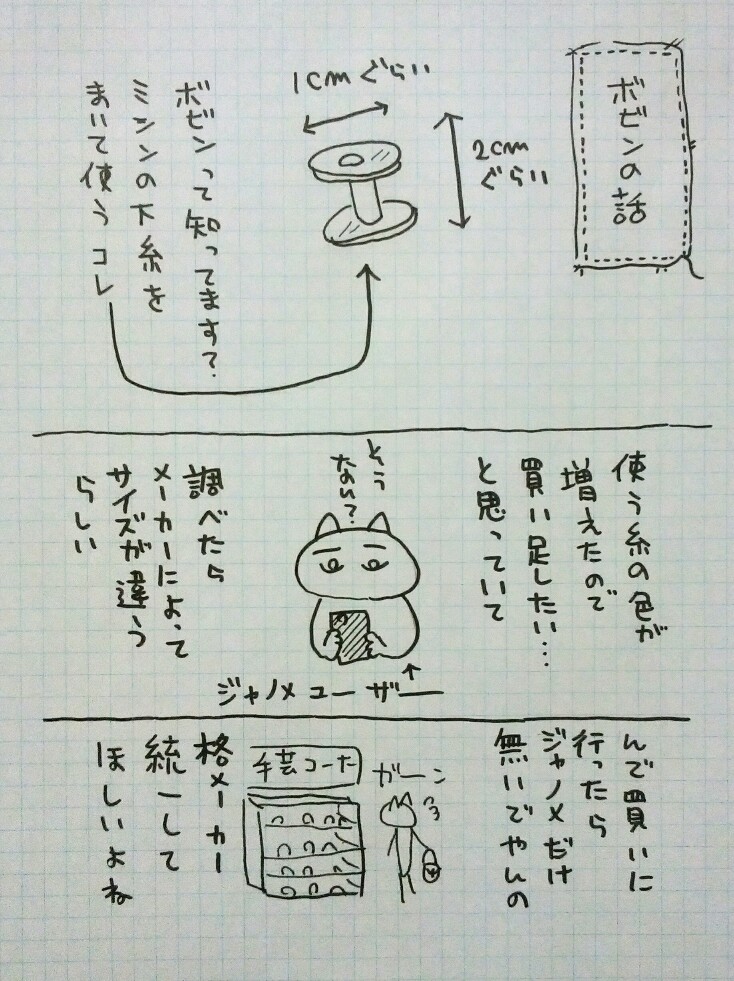 ボビンの話
1cmぐらい
2cm
ぐらい
ボビンって知ってます?
ミシンの下糸を
まいて使うコレ
使う糸の色が
増えたので
買い足したい…
と思っていて
そう
ない?
ジャノメユーザー
調べたら
メーカーによって
サイズが違う
らしい
んで買いに
行ったら
ジャノメだけ
無いでやんの
ガーン
手芸コーナー
格メーカー
統一して
ほしいよね